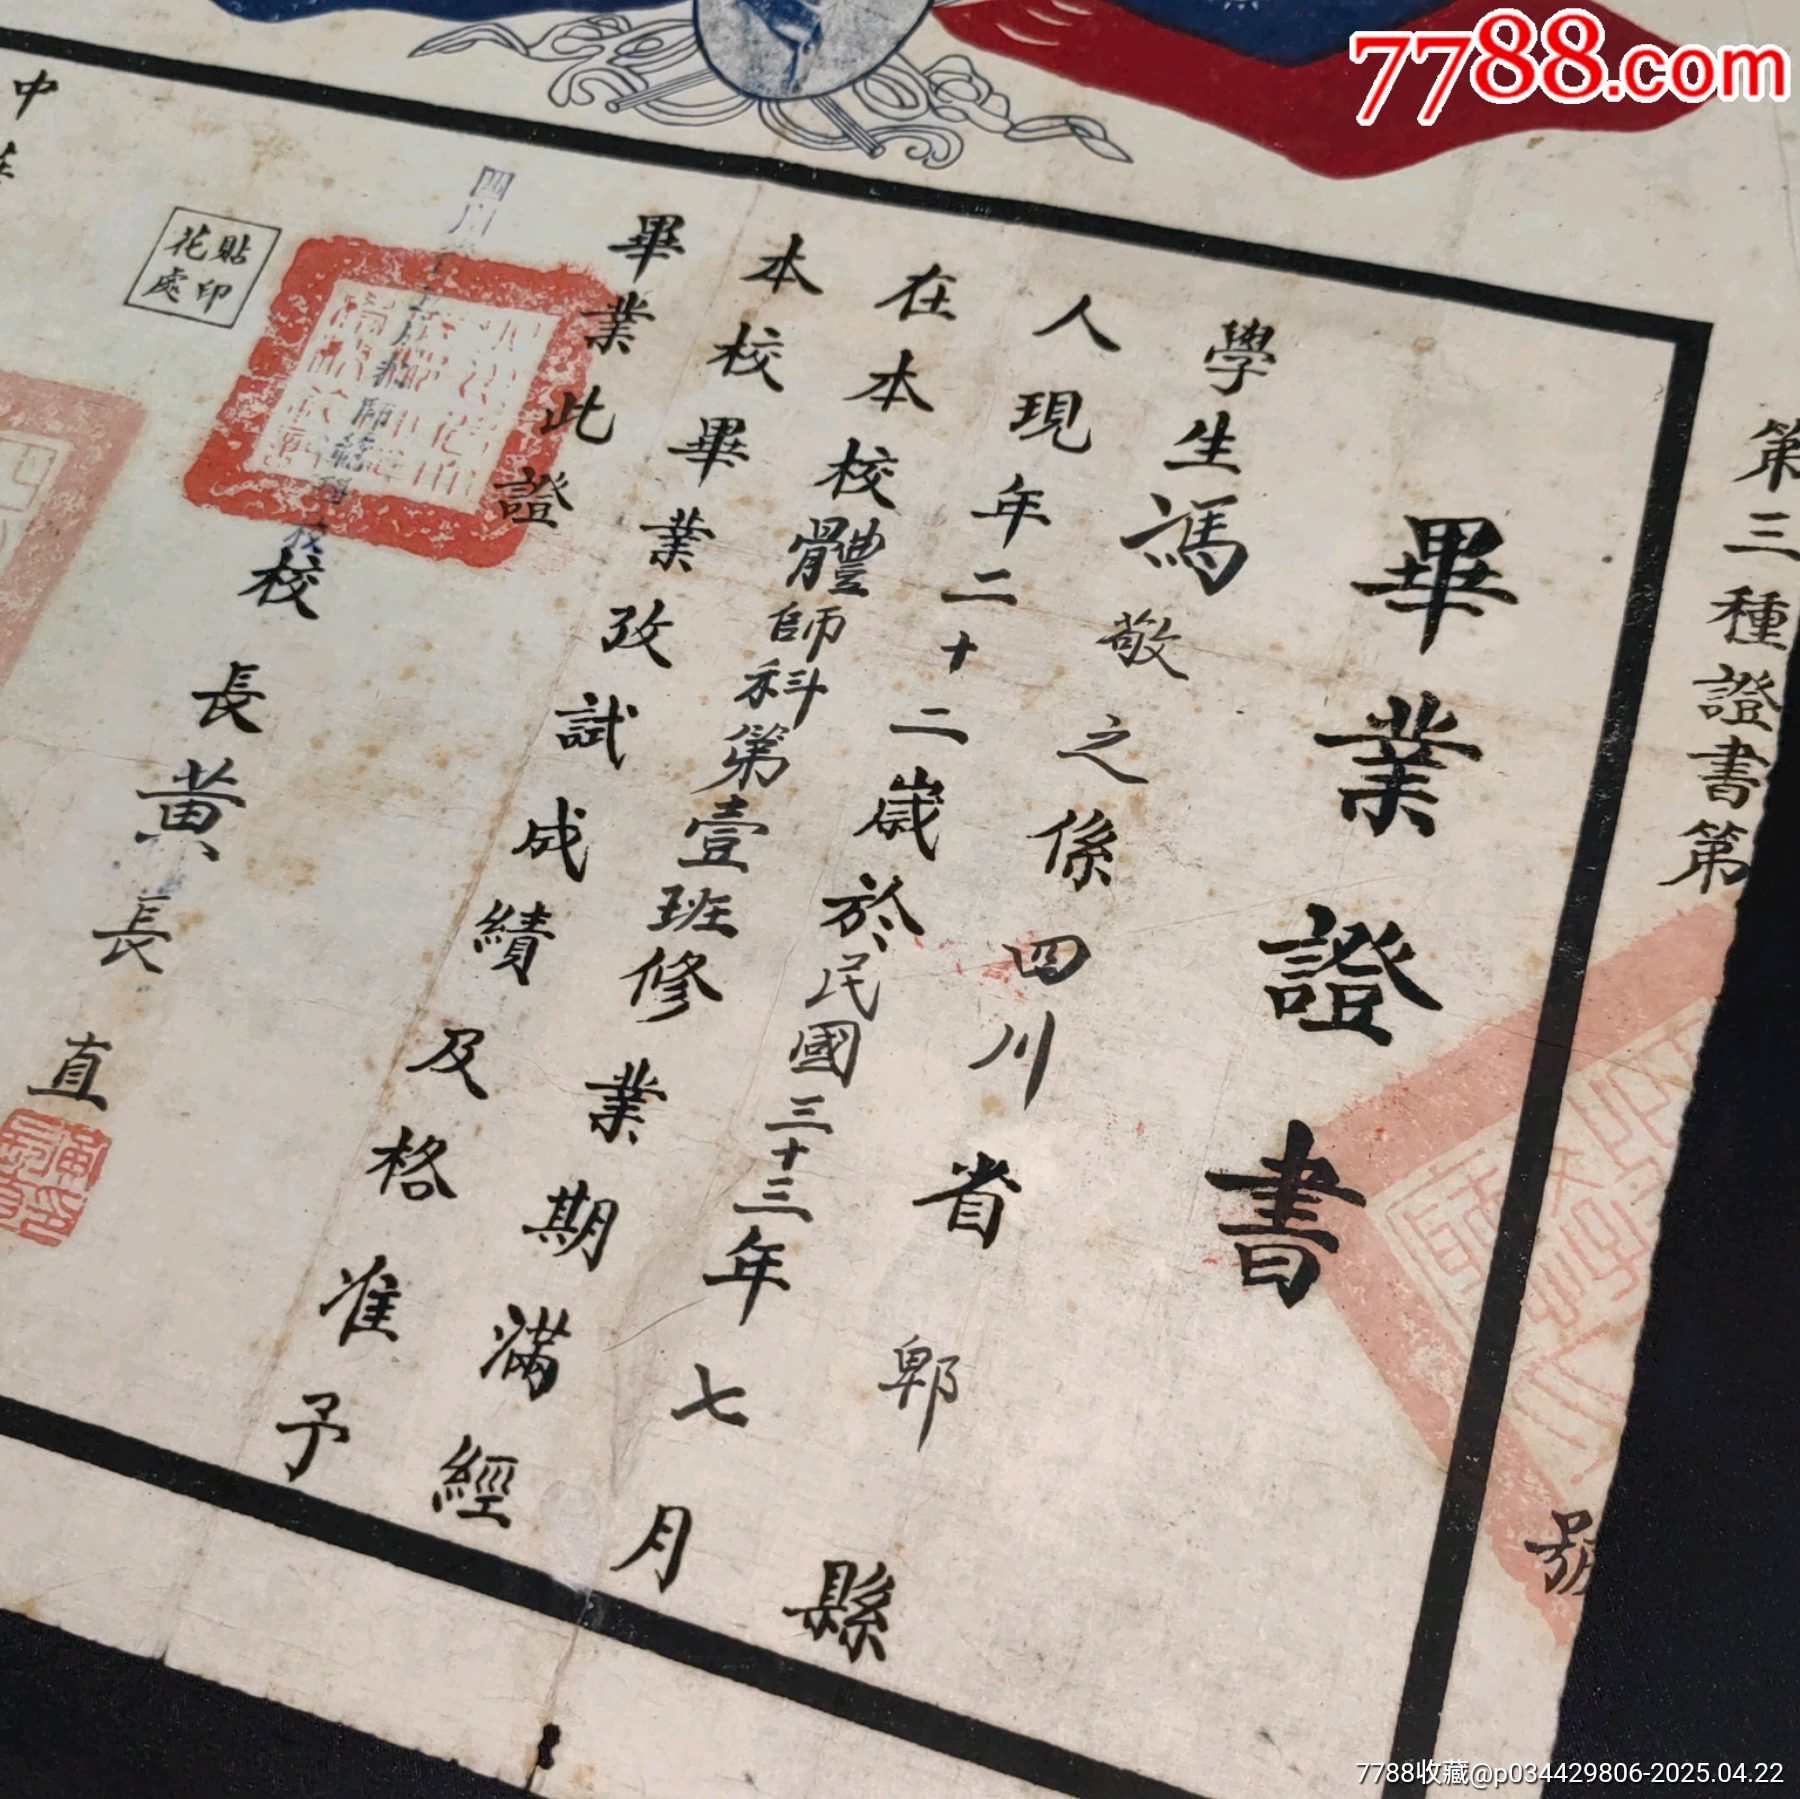 7788.com
第三種證書第 號
畢業證書
學生馮敬之係四川省郫縣
人現年二十二歲於民國三十三年七月
在本校體師科第壹班修業期滿經
本校畢業攷試成績及格准予
畢業此證
四川
校長黃長直
貼印花處
中
7788收藏@p034429806-2025.04.22